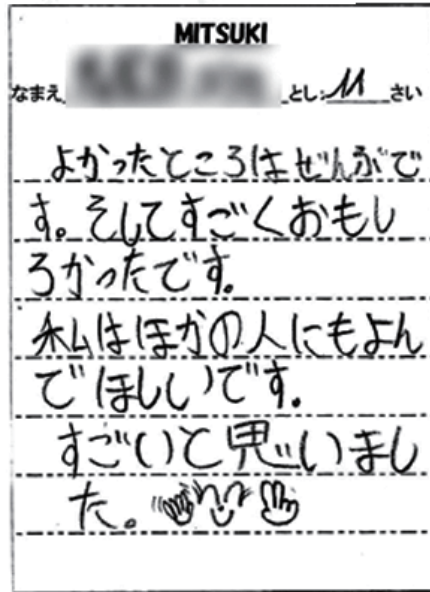 MITSUKI
なまえ とし:11さい
よかったところはぜんぶで
す。そしてすごくおもし
ろかったです。
私はほかの人にもよん
でほしいです。
すごいと思いまし
た。